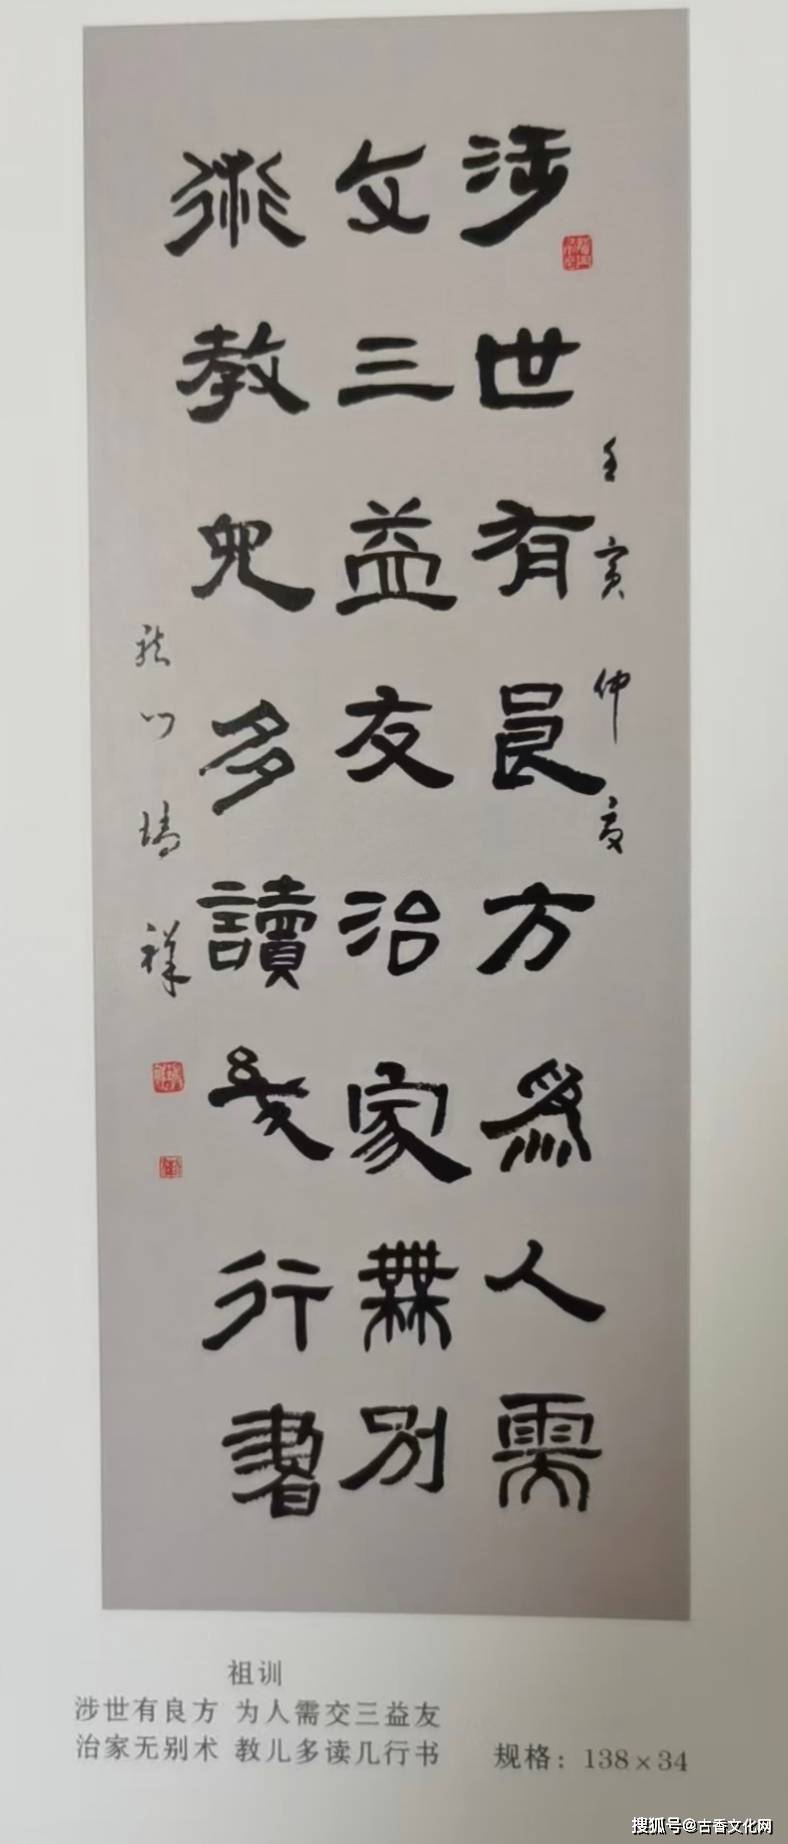 壬寅仲夏
涉世有良方為人需
交三益友治家無別
術教兒多讀幾行書
祥
祖训
涉世有良方 为人需交三益友
治家无别术 教儿多读几行书
规格：138×34
搜狐号@古香文化网